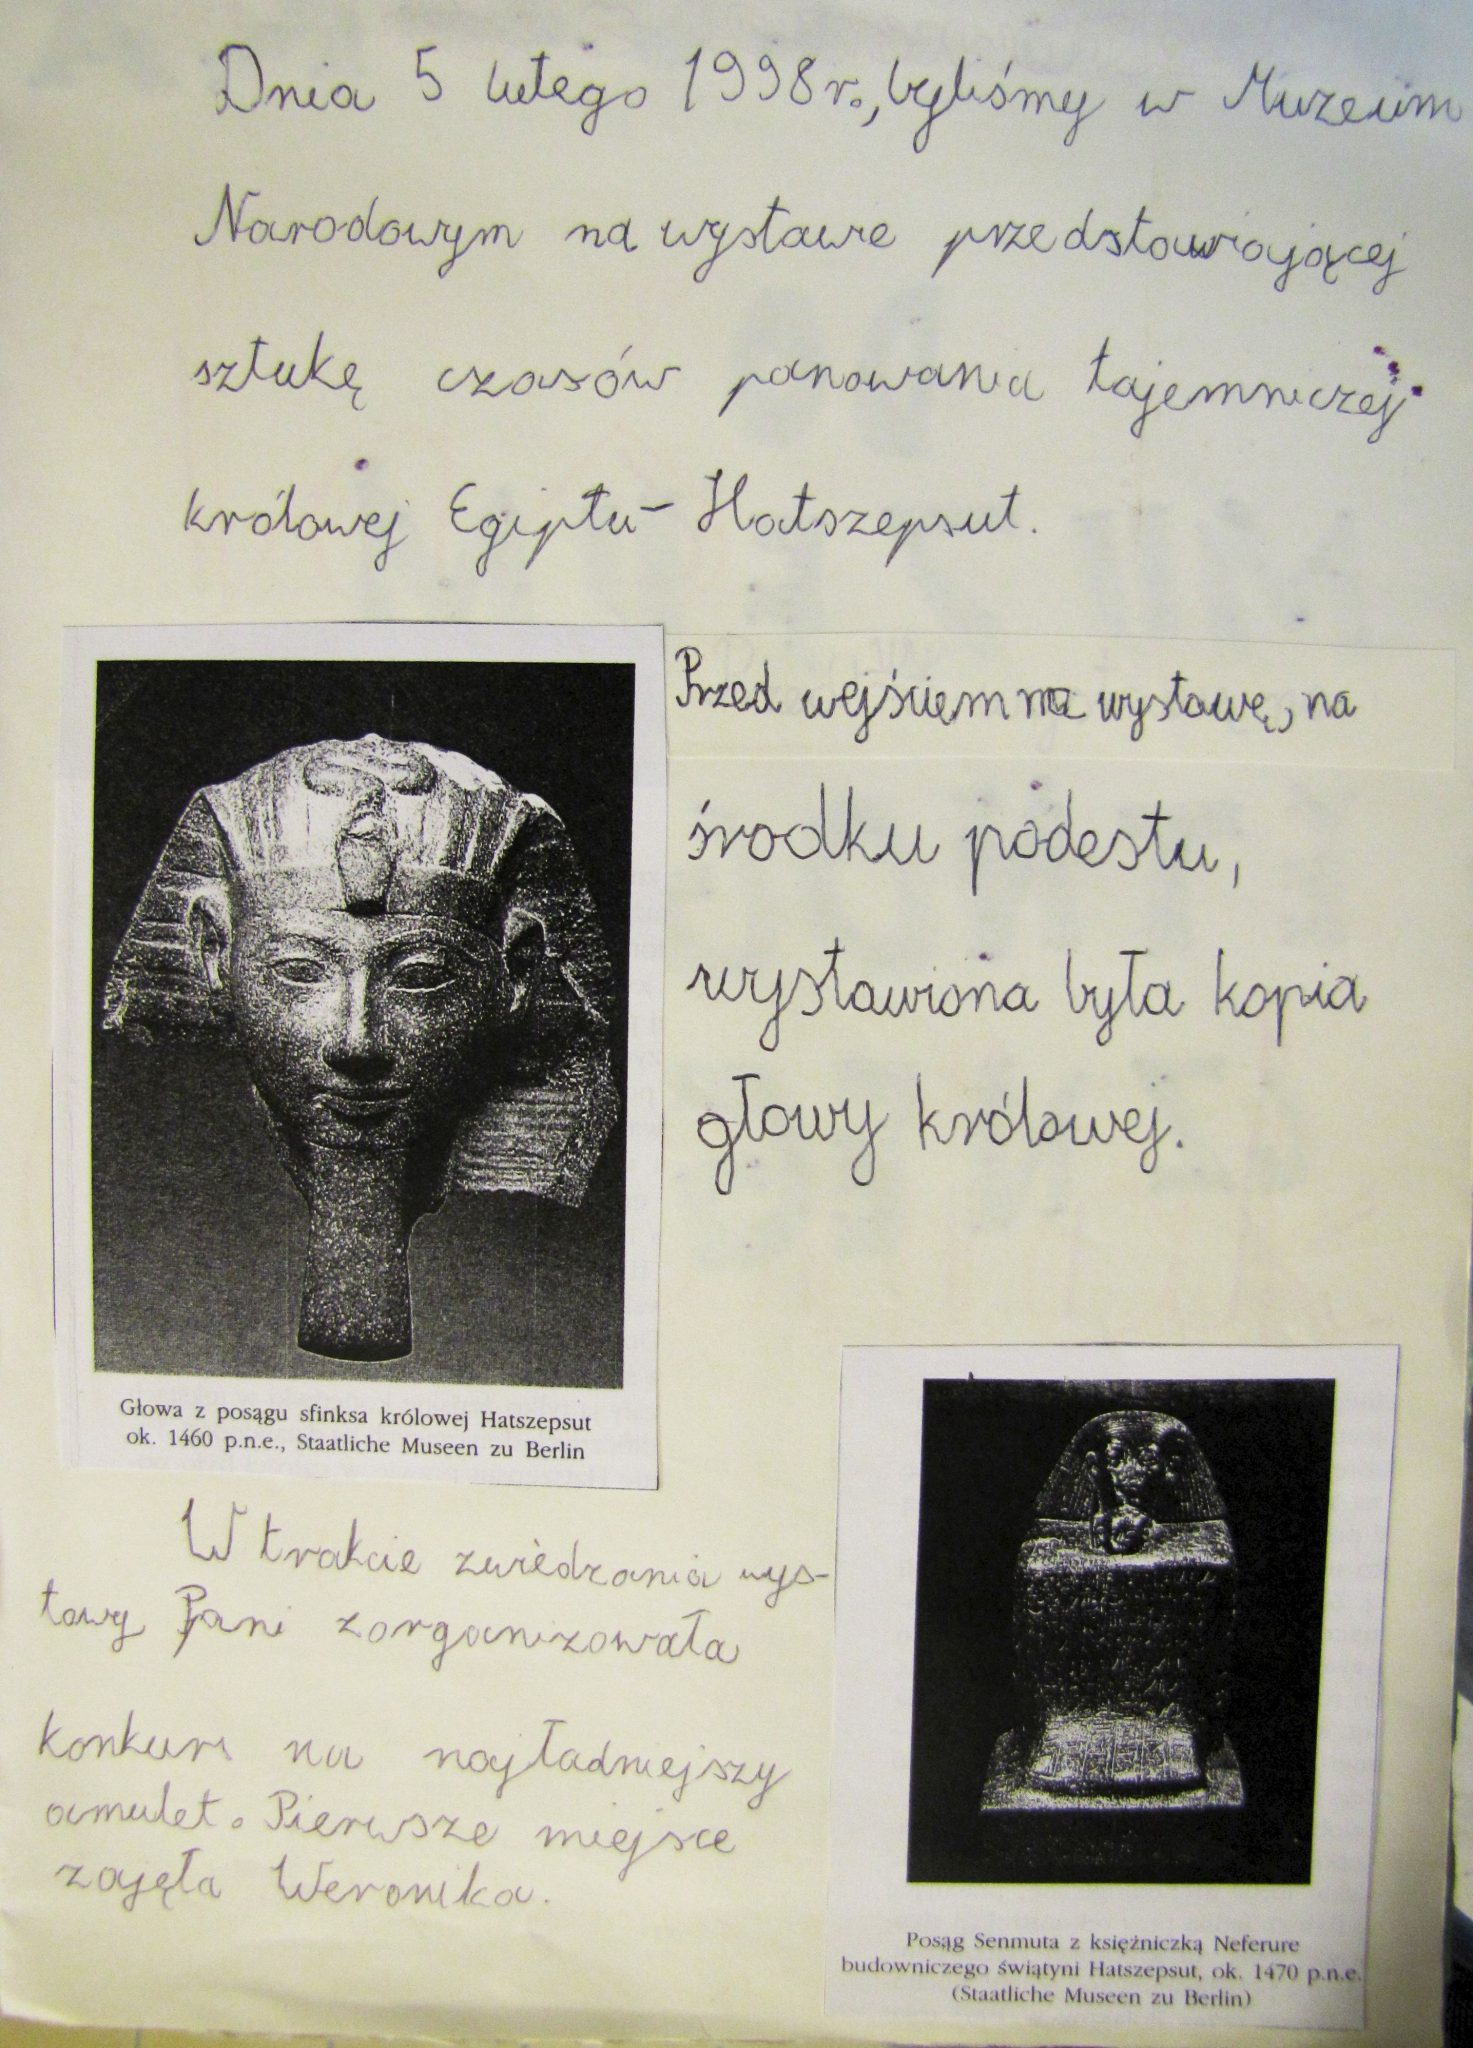 Dnia 5 lutego 1998r., byliśmy w Muzeum
Narodowym na wystawie przedstawiającej
sztukę czasów panowania tajemniczej
królowej Egiptu- Hatszepsut.
Przed wejściem na wystawę, na
środku podestu,
wystawiona była kopia
głowy królowej.
Głowa z posągu sfinksa królowej Hatszepsut
ok. 1460 p.n.e., Staatliche Museen zu Berlin
W trakcie zwiedzania wys-
tawy Pani zorganizowała
konkurs na najładniejszy
amulet. Pierwsze miejsce
zajęła Weronika.
Posąg Senmuta z księżniczką Neferure
budowniczego świątyni Hatszepsut, ok. 1470 p.n.e.
(Staatliche Museen zu Berlin)